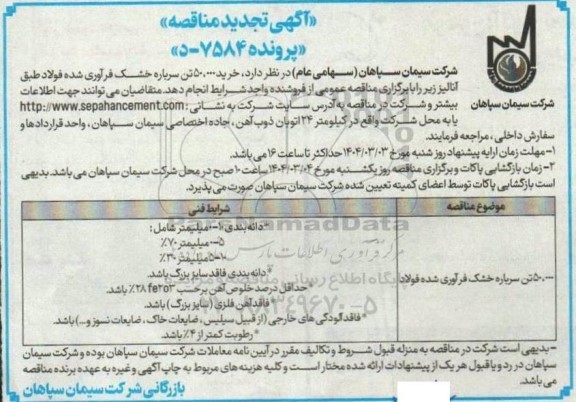 «آگهی تجدید مناقصه»
«پرونده ۷۵۸۴-د»
شرکت سیمان سپاهان
شرکت سیمان سپاهان (سهامی عام) در نظر دارد، خرید ۵۰.۰۰۰ تن سرباره خشک فرآوری شده فولاد طبق
آنالیز زیر را با برگزاری مناقصه عمومی از فروشنده واجد شرایط انجام دهد. متقاضیان می توانند جهت اطلاعات
بیشتر و شرکت در مناقصه به آدرس سایت شرکت به نشانی: http://www.sepahancement.com
یا به محل شرکت واقع در کیلومتر ۲۴ اتوبان ذوب آهن، جاده اختصاصی سیمان سپاهان، واحد قراردادها و
سفارش داخلی، مراجعه فرمایند.
۱- مهلت زمان ارایه پیشنهاد روز شنبه مورخ ۱۴۰۴/۰۳/۰۳ حداکثر تا ساعت ۱۶ می باشد.
۲- زمان بازگشایی پاکات و برگزاری مناقصه روز یکشنبه مورخ ۱۴۰۴/۰۳/۰۴ ساعت ۱۰ صبح در محل شرکت سیمان سپاهان می باشد. بدیهی
است بازگشایی پاکات توسط اعضای کمیته تعیین شده شرکت سیمان سپاهان صورت می پذیرد.
موضوع مناقصه
شرایط فنی
۵۰.۰۰۰ تن سرباره خشک فرآوری شده فولاد
*دانه بندی: ۱۰-۰ میلیمتر شامل:
۵-۰ میلیمتر ۷۰٪
۱۰-۵ میلیمتر ۳۰٪
*دانه بندی فاقد سایز بزرگ باشد.
*حداقل درصد خلوص آهن بر حسب fe2o3 ۲۸٪ باشد.
*فاقد آهن فلزی (سایز بزرگ) باشد.
*فاقد آلودگی های خارجی (از قبیل سیلیس، ضایعات خاک، ضایعات نسوز و...) باشد.
*رطوبت کمتر از ۴٪ باشد.
- بدیهی است شرکت در مناقصه به منزله قبول شروط و تکالیف مقرر در آیین نامه معاملات شرکت سیمان سپاهان بوده و شرکت سیمان
سپاهان در رد و یا قبول هر یک از پیشنهادات ارائه شده مختار است و کلیه هزینه های مربوط به چاپ آگهی و غیره به عهده برنده مناقصه
می باشد.
بازرگانی شرکت سیمان سپاهان
ParsNamadData